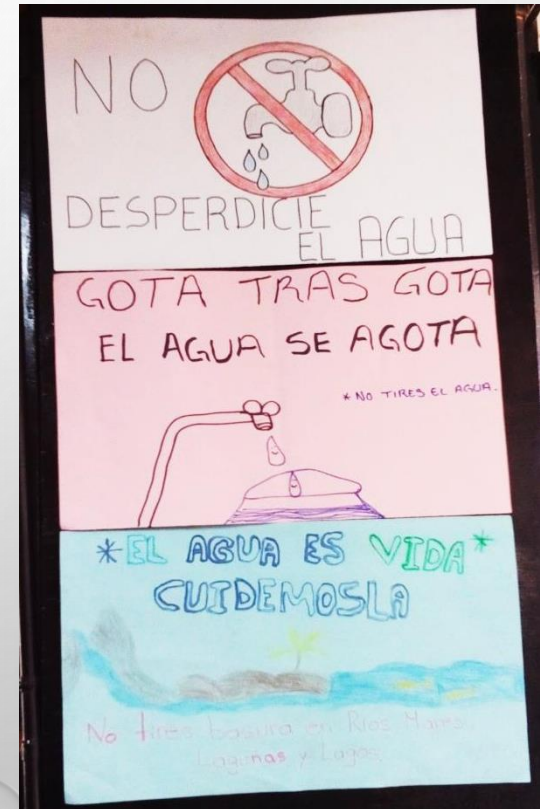 NO
DESPERDICIE
EL AGUA
GOTA TRAS GOTA
EL AGUA SE AGOTA
* NO TIRES EL AGUA.
*EL AGUA ES VIDA*
CUIDEMOSLA
No tires basura en Rios Mares
Lagunas y Lagos